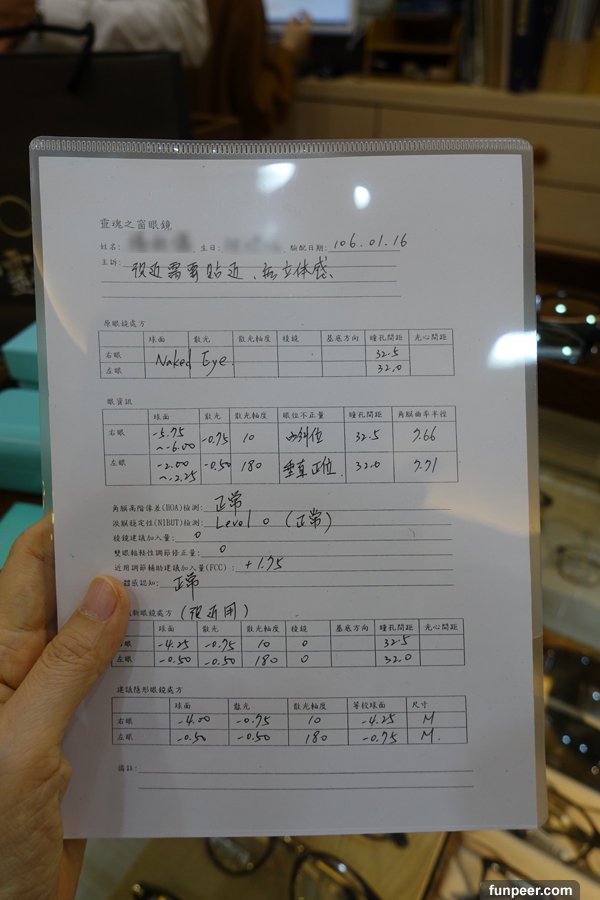 靈魂之窗眼鏡
姓名: 生日: 驗配日期: 106.01.16
主訴: 視近需要貼近、無立體感、
原眼鏡處方
球面 散光 散光軸度 稜鏡 基底方向 瞳孔間距 光心間距
右眼 Naked Eye. 32.5
左眼 32.0
眼資訊
球面 散光 散光軸度 眼位不正量 瞳孔間距 角膜曲率半徑
右眼 -5.75 ~-6.00 -0.75 10 內斜位 32.5 7.66
左眼 -2.00 ~-2.25 -0.50 180 垂直正位. 32.0 7.71
角膜高階像差(HOA)檢測: 正常
淚膜穩定性(NIBUT)檢測: Level 0 (正常)
稜鏡建議加入量: 0
雙眼輻輳性調節修正量: 0
近用調節輔助建議加入量(FCC): +1.75
體感認知: 正常
新眼鏡處方 (視近用)
球面 散光 散光軸度 稜鏡 基底方向 瞳孔間距 光心間距
右眼 -4.25 -0.75 10 0 32.5
左眼 -0.50 -0.50 180 0 32.0
建議隱形眼鏡處方
球面 散光 散光軸度 等校球面 尺寸
右眼 -4.00 -0.75 10 -4.25 M
左眼 -0.50 -0.50 180 -0.75 M.
備註:
funpeer.com